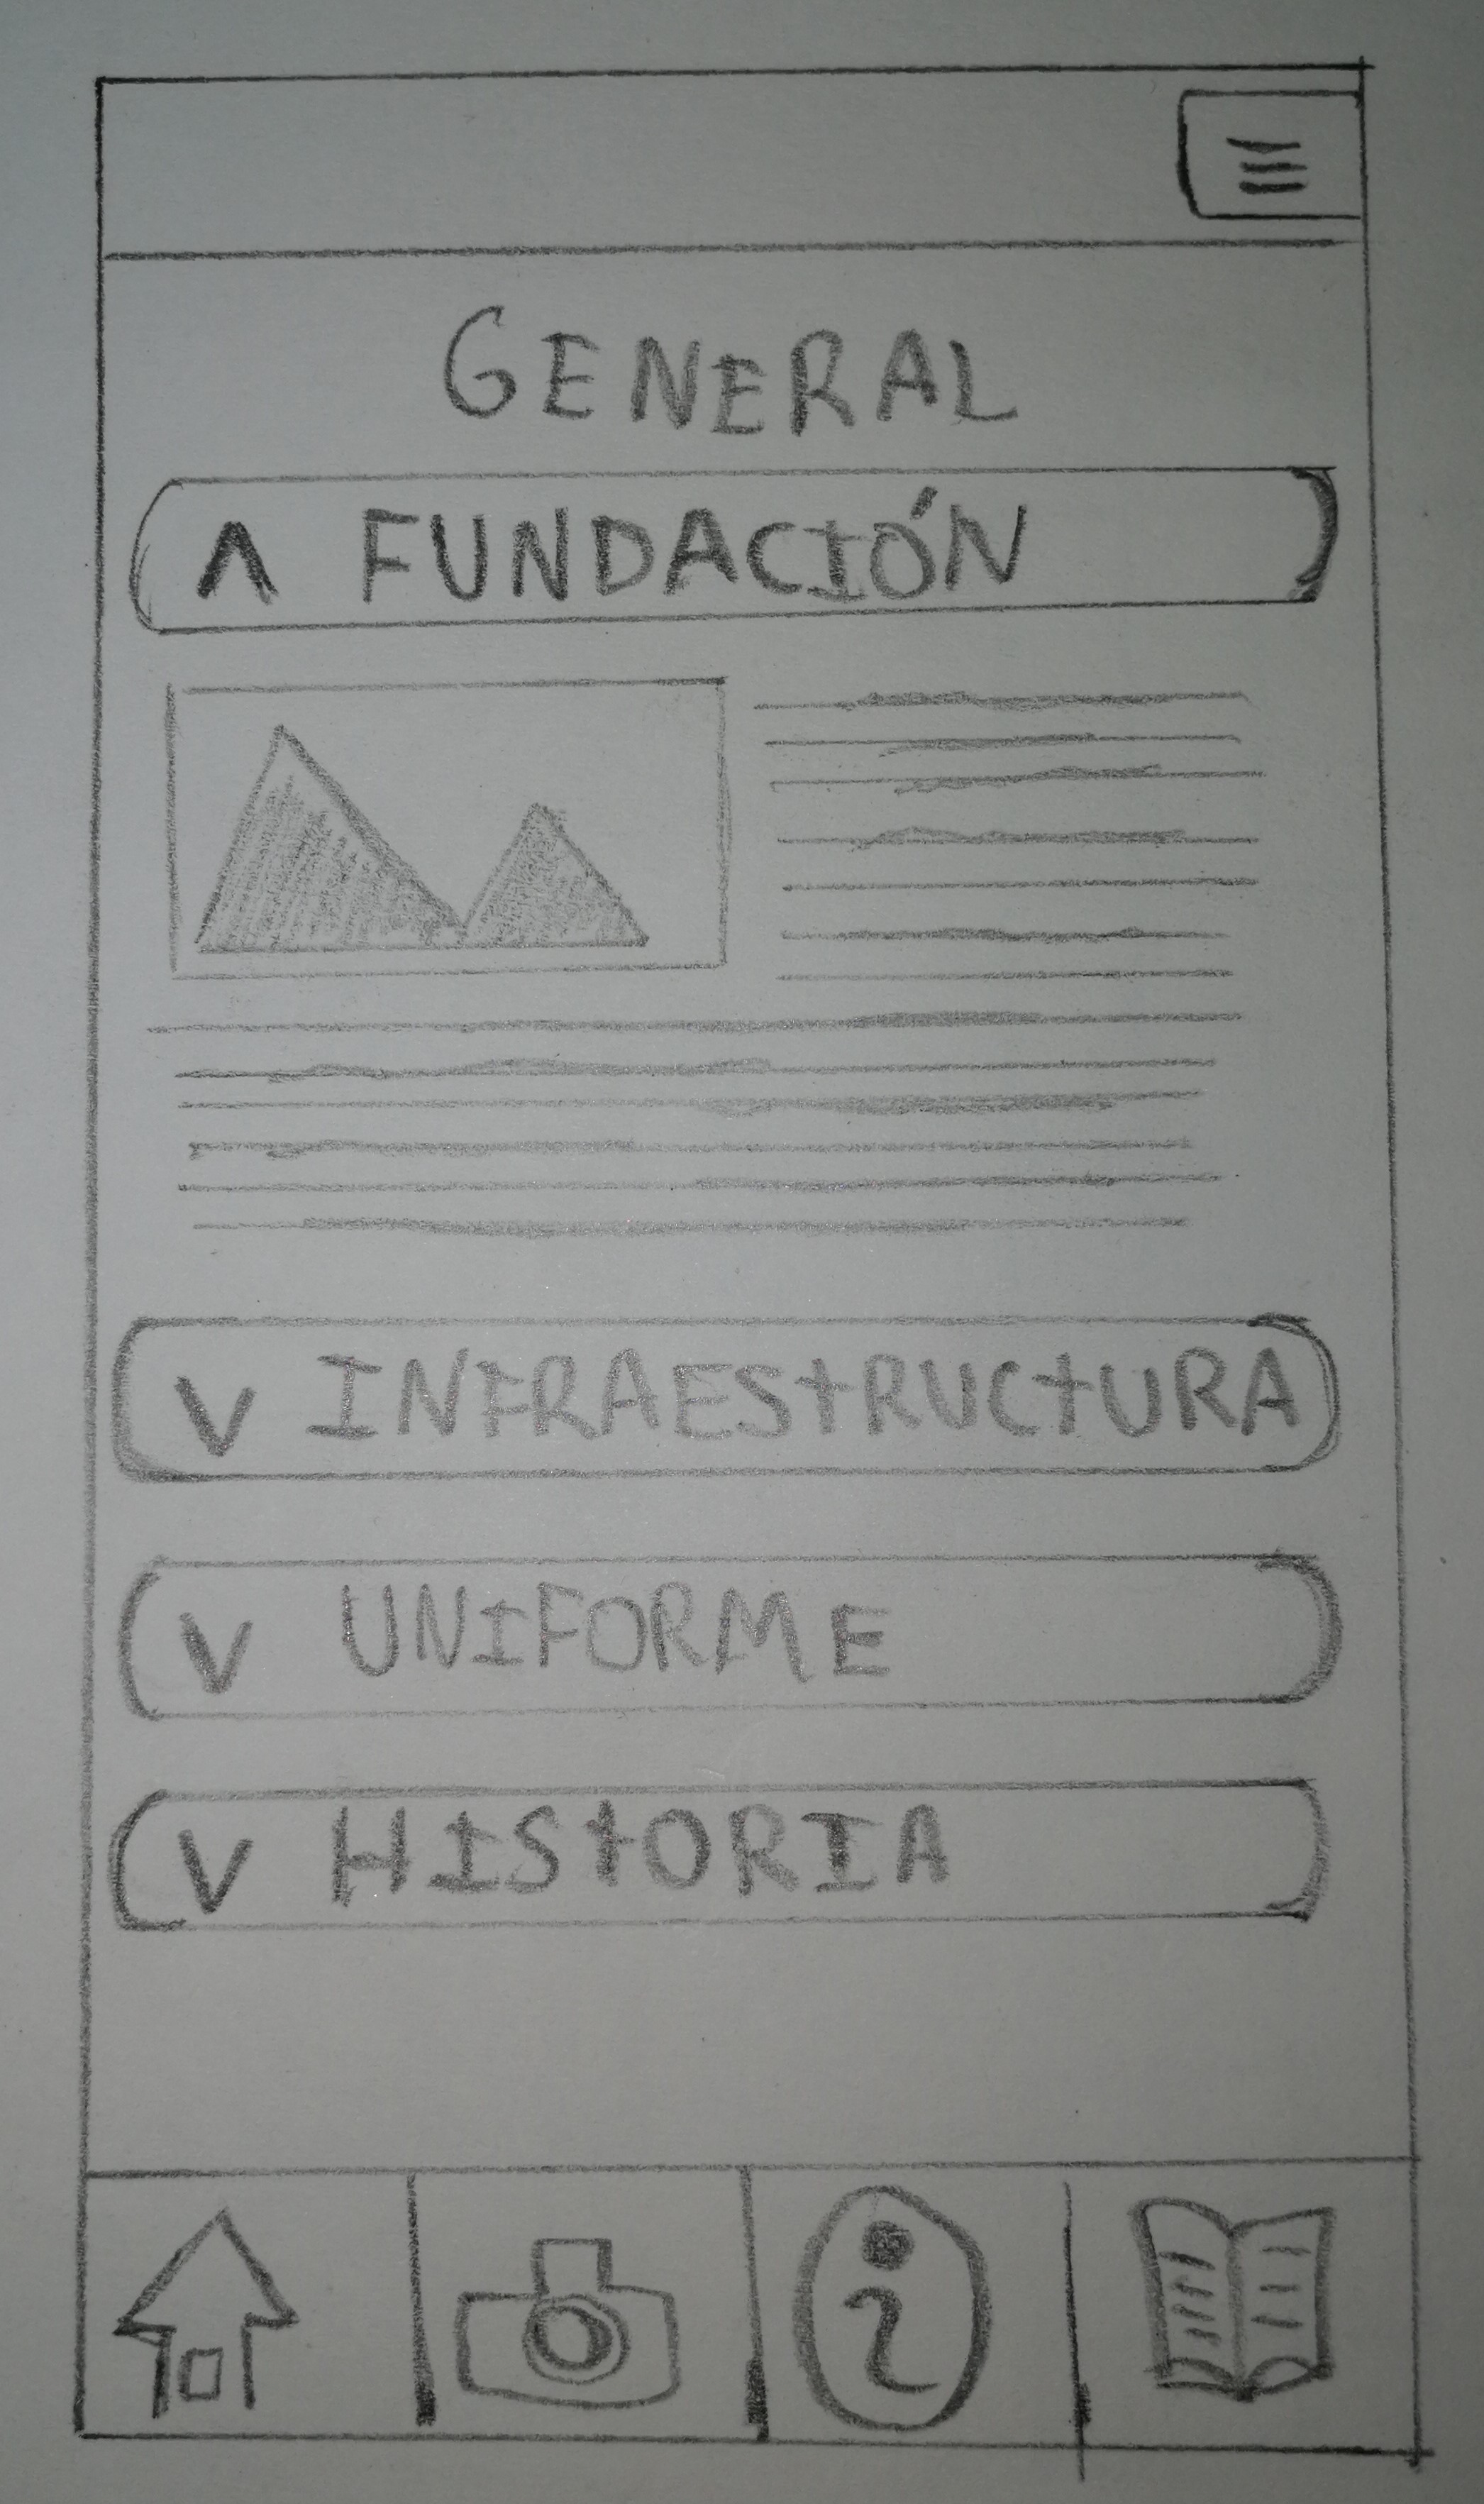 GENERAL
FUNDACIÓN
INFRAESTRUCTURA
UNIFORME
HISTORIA
i